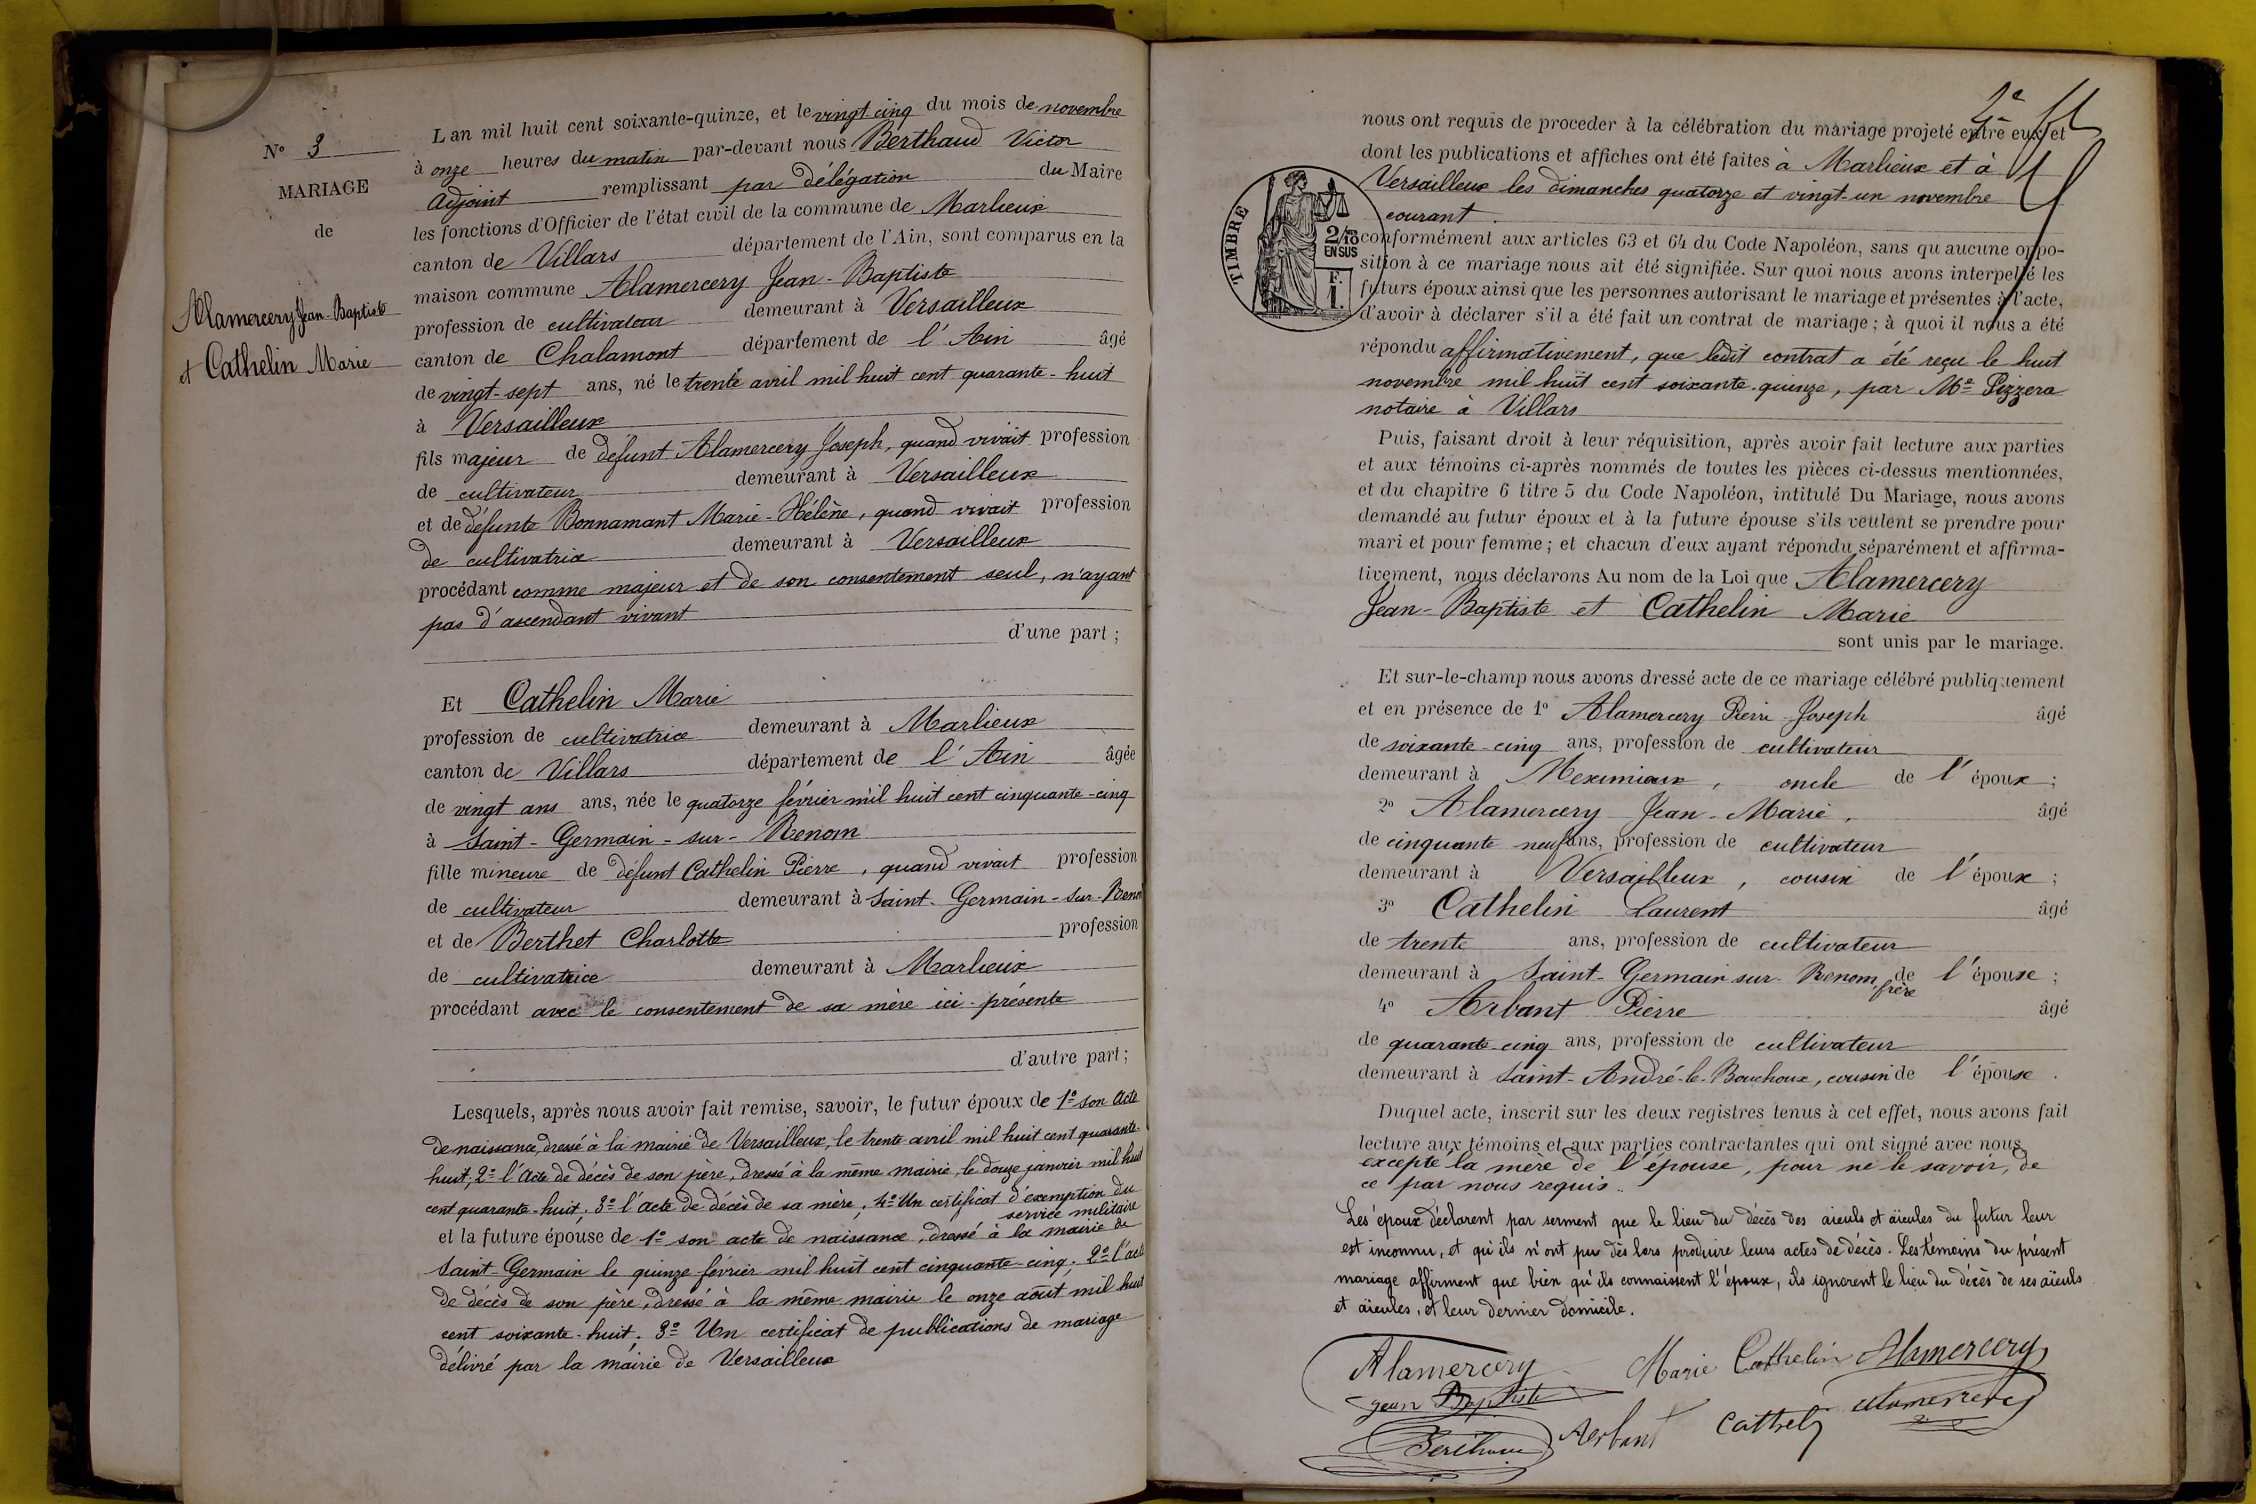 N° 3
MARIAGE
de
Alamercery Jean-Baptiste
et Cathelin Marie
L an mil huit cent soixante-quinze, et le vingt cinq du mois de novembre
à onze heures du matin par-devant nous Berthaud Victor
adjoint remplissant par délégation du Maire
les fonctions d'Officier de l'état civil de la commune de Marlieux
canton de Villars département de l'Ain, sont comparus en la
maison commune Alamercery Jean-Baptiste
profession de cultivateur demeurant à Versailleux
canton de Chalamont département de l'Ain âgé
de vingt-sept ans, né le trente avril mil huit cent quarante-huit
à Versailleux
fils majeur de défunt Alamercery Joseph, quand vivait profession
de cultivateur demeurant à Versailleux
et de défunte Bonnamant Marie-Hélène, quand vivait profession
de cultivatrice demeurant à Versailleux
procédant comme majeur et de son consentement seul, n'ayant
pas d'ascendant vivant
d'une part ;
Et Cathelin Marie
profession de cultivatrice demeurant à Marlieux
canton de Villars département de l'Ain âgée
de vingt ans ans, née le quatorze février mil huit cent cinquante-cinq
à Saint-Germain-sur-Renom
fille mineure de défunt Cathelin Pierre, quand vivait profession
de cultivateur demeurant à Saint-Germain-sur-Renom
et de Berthet Charlotte profession
de cultivatrice demeurant à Marlieux
procédant avec le consentement de sa mère ici-présente
d'autre part ;
Lesquels, après nous avoir fait remise, savoir, le futur époux de 1° son acte
de naissance, dressé à la mairie de Versailleux, le trente avril mil huit cent quarante-
huit ; 2° l'acte de décès de son père, dressé à la même mairie, le douze janvier mil huit
cent quarante-huit ; 3° l'acte de décès de sa mère ; 4° Un certificat d'exemption du
service militaire
et la future épouse de 1° son acte de naissance, dressé à la mairie de
Saint-Germain le quinze février mil huit cent cinquante-cinq ; 2° l'acte
de décès de son père, dressé à la même mairie le onze août mil huit
cent soixante-huit. 3° Un certificat de publications de mariage
délivré par la mairie de Versailleux
nous ont requis de proceder à la célébration du mariage projeté entre eux et
dont les publications et affiches ont été faites à Marlieux et à
Versailleux les dimanches quatorze et vingt-un novembre
courant.
TIMBRE
2/10 EN SUS
F. 1.
conformément aux articles 63 et 64 du Code Napoléon, sans qu'aucune oppo-
sition à ce mariage nous ait été signifiée. Sur quoi nous avons interpellé les
futurs époux ainsi que les personnes autorisant le mariage et présentes à l'acte,
d'avoir à déclarer s'il a été fait un contrat de mariage ; à quoi il nous a été
répondu affirmativement, que ledit contrat a été reçu le huit
novembre mil huit cent soixante-quinze, par Me Pizzera
notaire à Villars
Puis, faisant droit à leur réquisition, après avoir fait lecture aux parties
et aux témoins ci-après nommés de toutes les pièces ci-dessus mentionnées,
et du chapitre 6 titre 5 du Code Napoléon, intitulé Du Mariage, nous avons
demandé au futur époux et à la future épouse s'ils veulent se prendre pour
mari et pour femme ; et chacun d'eux ayant répondu séparément et affirma-
tivement, nous déclarons Au nom de la Loi que Alamercery
Jean-Baptiste et Cathelin Marie
sont unis par le mariage.
Et sur-le-champ nous avons dressé acte de ce mariage célébré publiquement
et en présence de 1° Alamercery Pierre Joseph âgé
de soixante-cinq ans, profession de cultivateur
demeurant à Meximieux, oncle de l'époux ;
2° Alamercery Jean-Marie, âgé
de cinquante neuf ans, profession de cultivateur
demeurant à Versailleux, cousin de l'époux ;
3° Cathelin Laurent âgé
de trente ans, profession de cultivateur
demeurant à Saint-Germain-sur-Renom, frère de l'épouse ;
4° Arbant Pierre âgé
de quarante-cinq ans, profession de cultivateur
demeurant à Saint-André-le-Bouchoux, cousin de l'épouse.
Duquel acte, inscrit sur les deux registres tenus à cet effet, nous avons fait
lecture aux témoins et aux parties contractantes qui ont signé avec nous
excepté la mère de l'épouse, pour ne le savoir, de
ce par nous requis.
Les époux déclarent par serment que le lieu du décès des aieuls et aïeules du futur leur
est inconnu, et qu'ils n'ont pu dès lors produire leurs actes de décès. Les témoins du présent
mariage affirment que bien qu'ils connaissent l'époux, ils ignorent le lieu du décès de ses aïeuls
et aïeules, et leur dernier domicile.
Alamercery Marie Cathelin Alamercery
jean Baptiste
Arbant Cathelin Alamercery
Berthaud